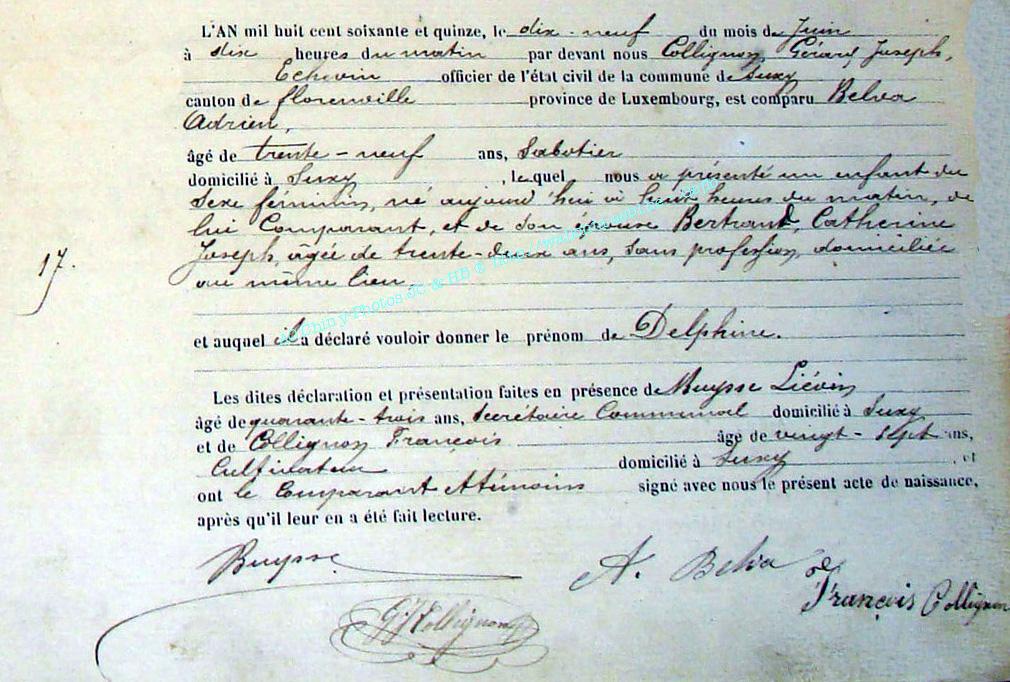 L'AN mil huit cent soixante et quinze, le dix-neuf du mois de Juin
à dix heures du matin par devant nous Collignon Gérard Joseph,
Echevin officier de l'état civil de la commune de Suxy
canton de florenville province de Luxembourg, est comparu Belva
Adrien,
âgé de trente-neuf ans, Sabotier
domicilié à Suxy, lequel nous a présenté un enfant du
Sexe feminin, né aujourd'hui à huit heures du matin, de
lui Comparant, et de son épouse Bertrand, Catherine
17. Joseph, âgée de trente-deux ans, sans profession, domiciliée
au même lieu.
et auquel il a déclaré vouloir donner le prénom de Delphine.
Les dites déclaration et présentation faites en présence de Ruysse Liévin
âgé de quarante-trois ans, Secrétaire Communal domicilié à Suxy
et de Collignon François âgé de vingt-sept ans,
Cultivateur domicilié à Suxy, et
ont le Comparant et témoins signé avec nous le présent acte de naissance,
après qu'il leur en a été fait lecture.
Ruysse
A. Belva
François Collignon
GJCollignon